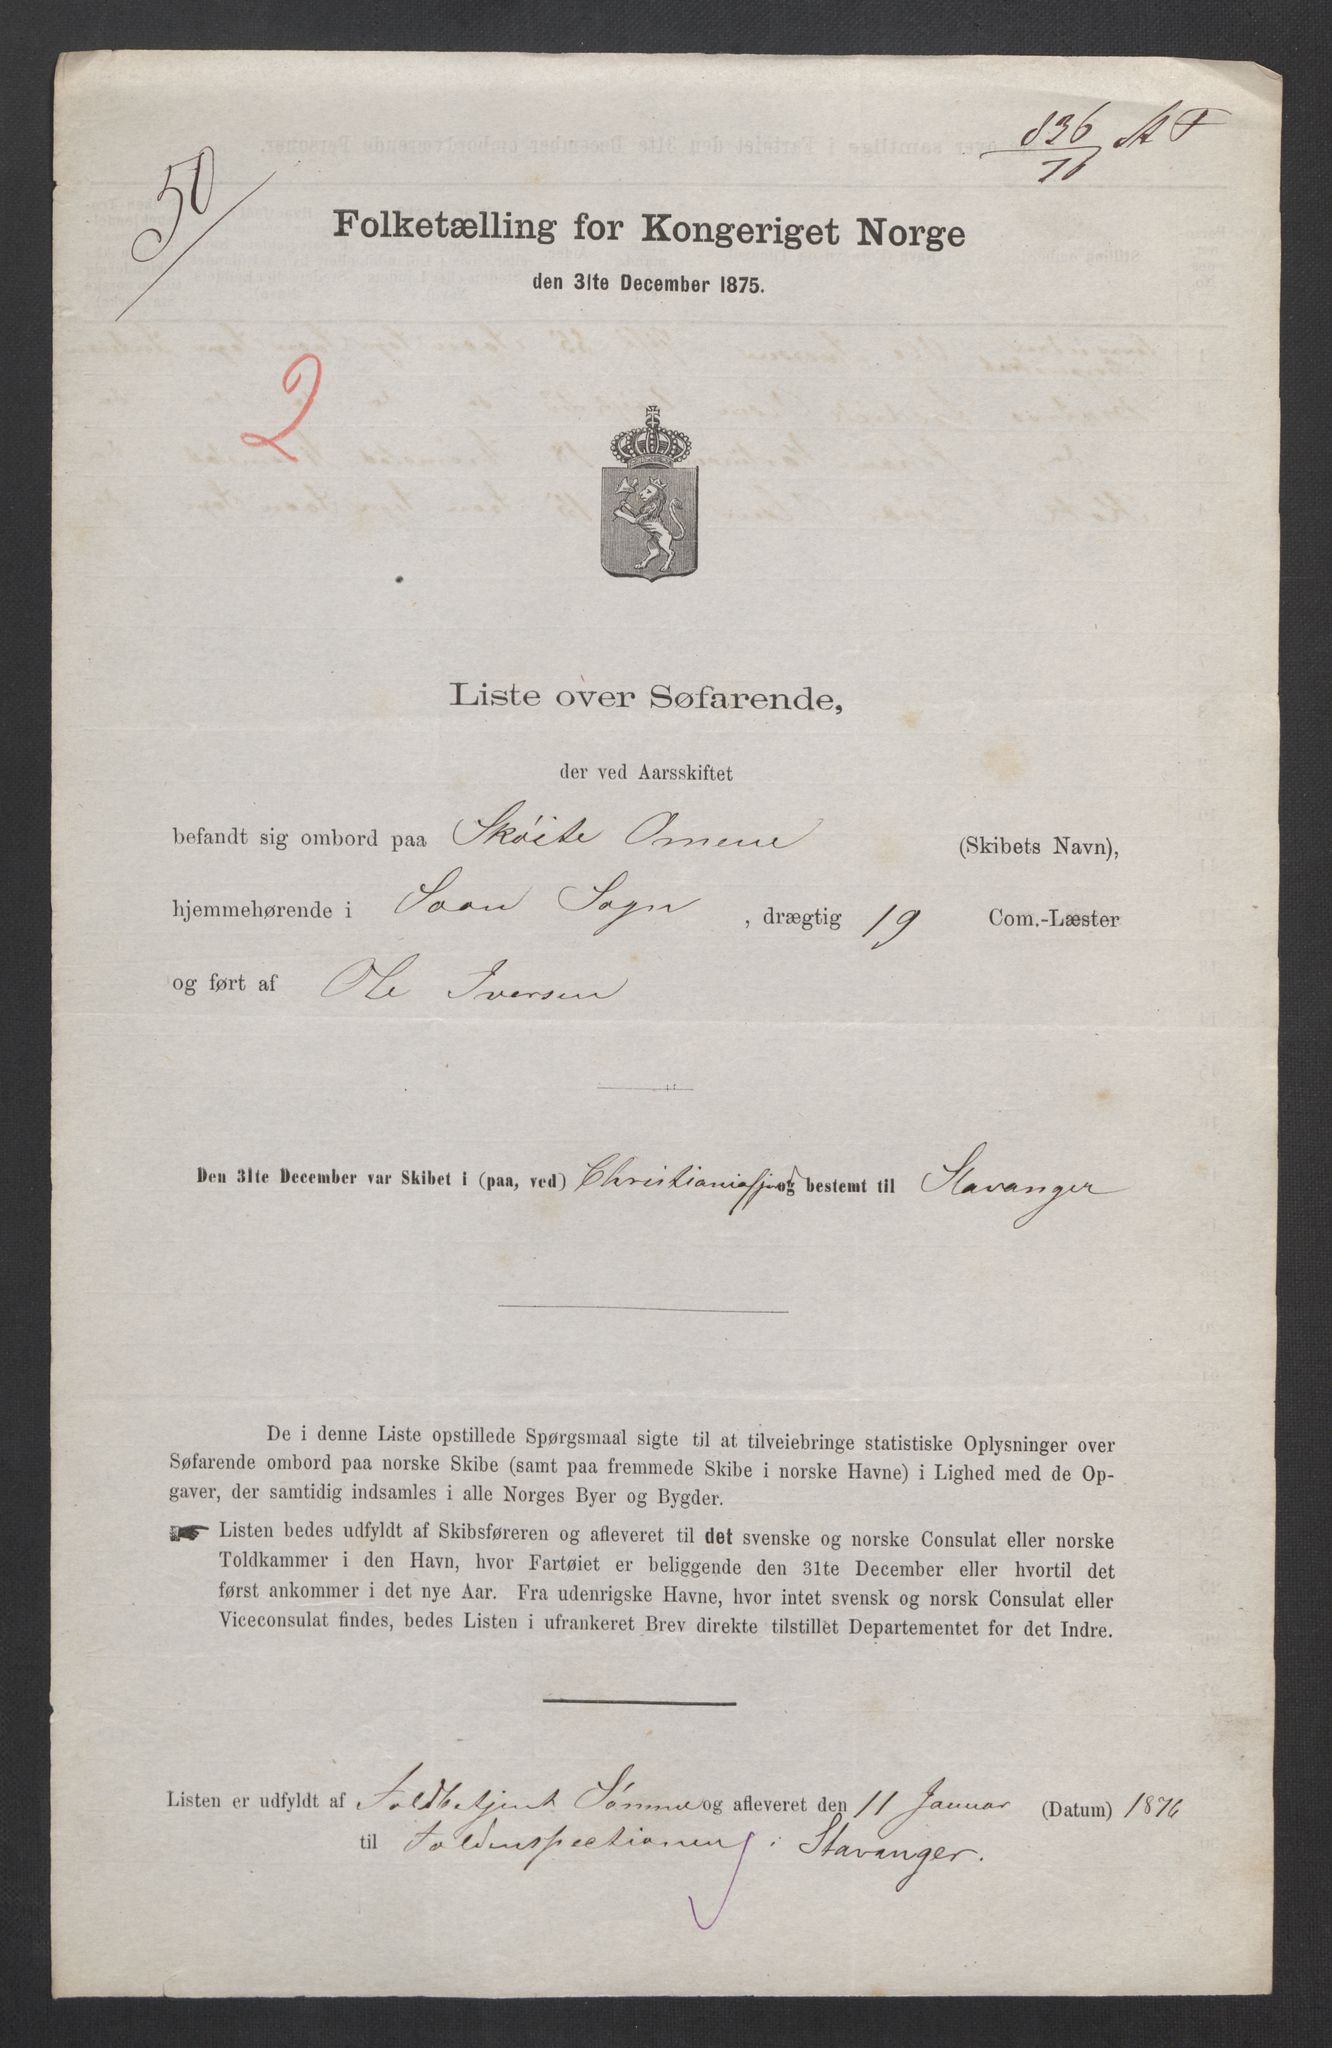 836/76 At T
50/
Folketælling for Kongeriget Norge
den 31te December 1875.
2
Liste over Søfarende,
der ved Aarsskiftet
befandt sig ombord paa Skøite Omene (Skibets Navn),
hjemmehørende i Soon Sogn, drægtig 19 Com.-Læster
og ført af Ole Iversen
Den 31te December var Skibet i (paa, ved) Christianiafjord og bestemt til Stavanger
De i denne Liste opstillede Spørgsmaal sigte til at tilveiebringe statistiske Oplysninger over
Søfarende ombord paa norske Skibe (samt paa fremmede Skibe i norske Havne) i Lighed med de Op-
gaver, der samtidig indsamles i alle Norges Byer og Bygder.
☛ Listen bedes udfyldt af Skibsføreren og afleveret til det svenske og norske Consulat eller norske
Toldkammer i den Havn, hvor Fartøiet er beliggende den 31te December eller hvortil det
først ankommer i det nye Aar. Fra udenrigske Havne, hvor intet svensk og norsk Consulat eller
Viceconsulat findes, bedes Listen i ufrankeret Brev direkte tilstillet Departementet for det Indre.
Listen er udfyldt af Toldbetjent Sömme og afleveret den 11 Januar (Datum) 1876
til Toldinspectionen i Stavanger.